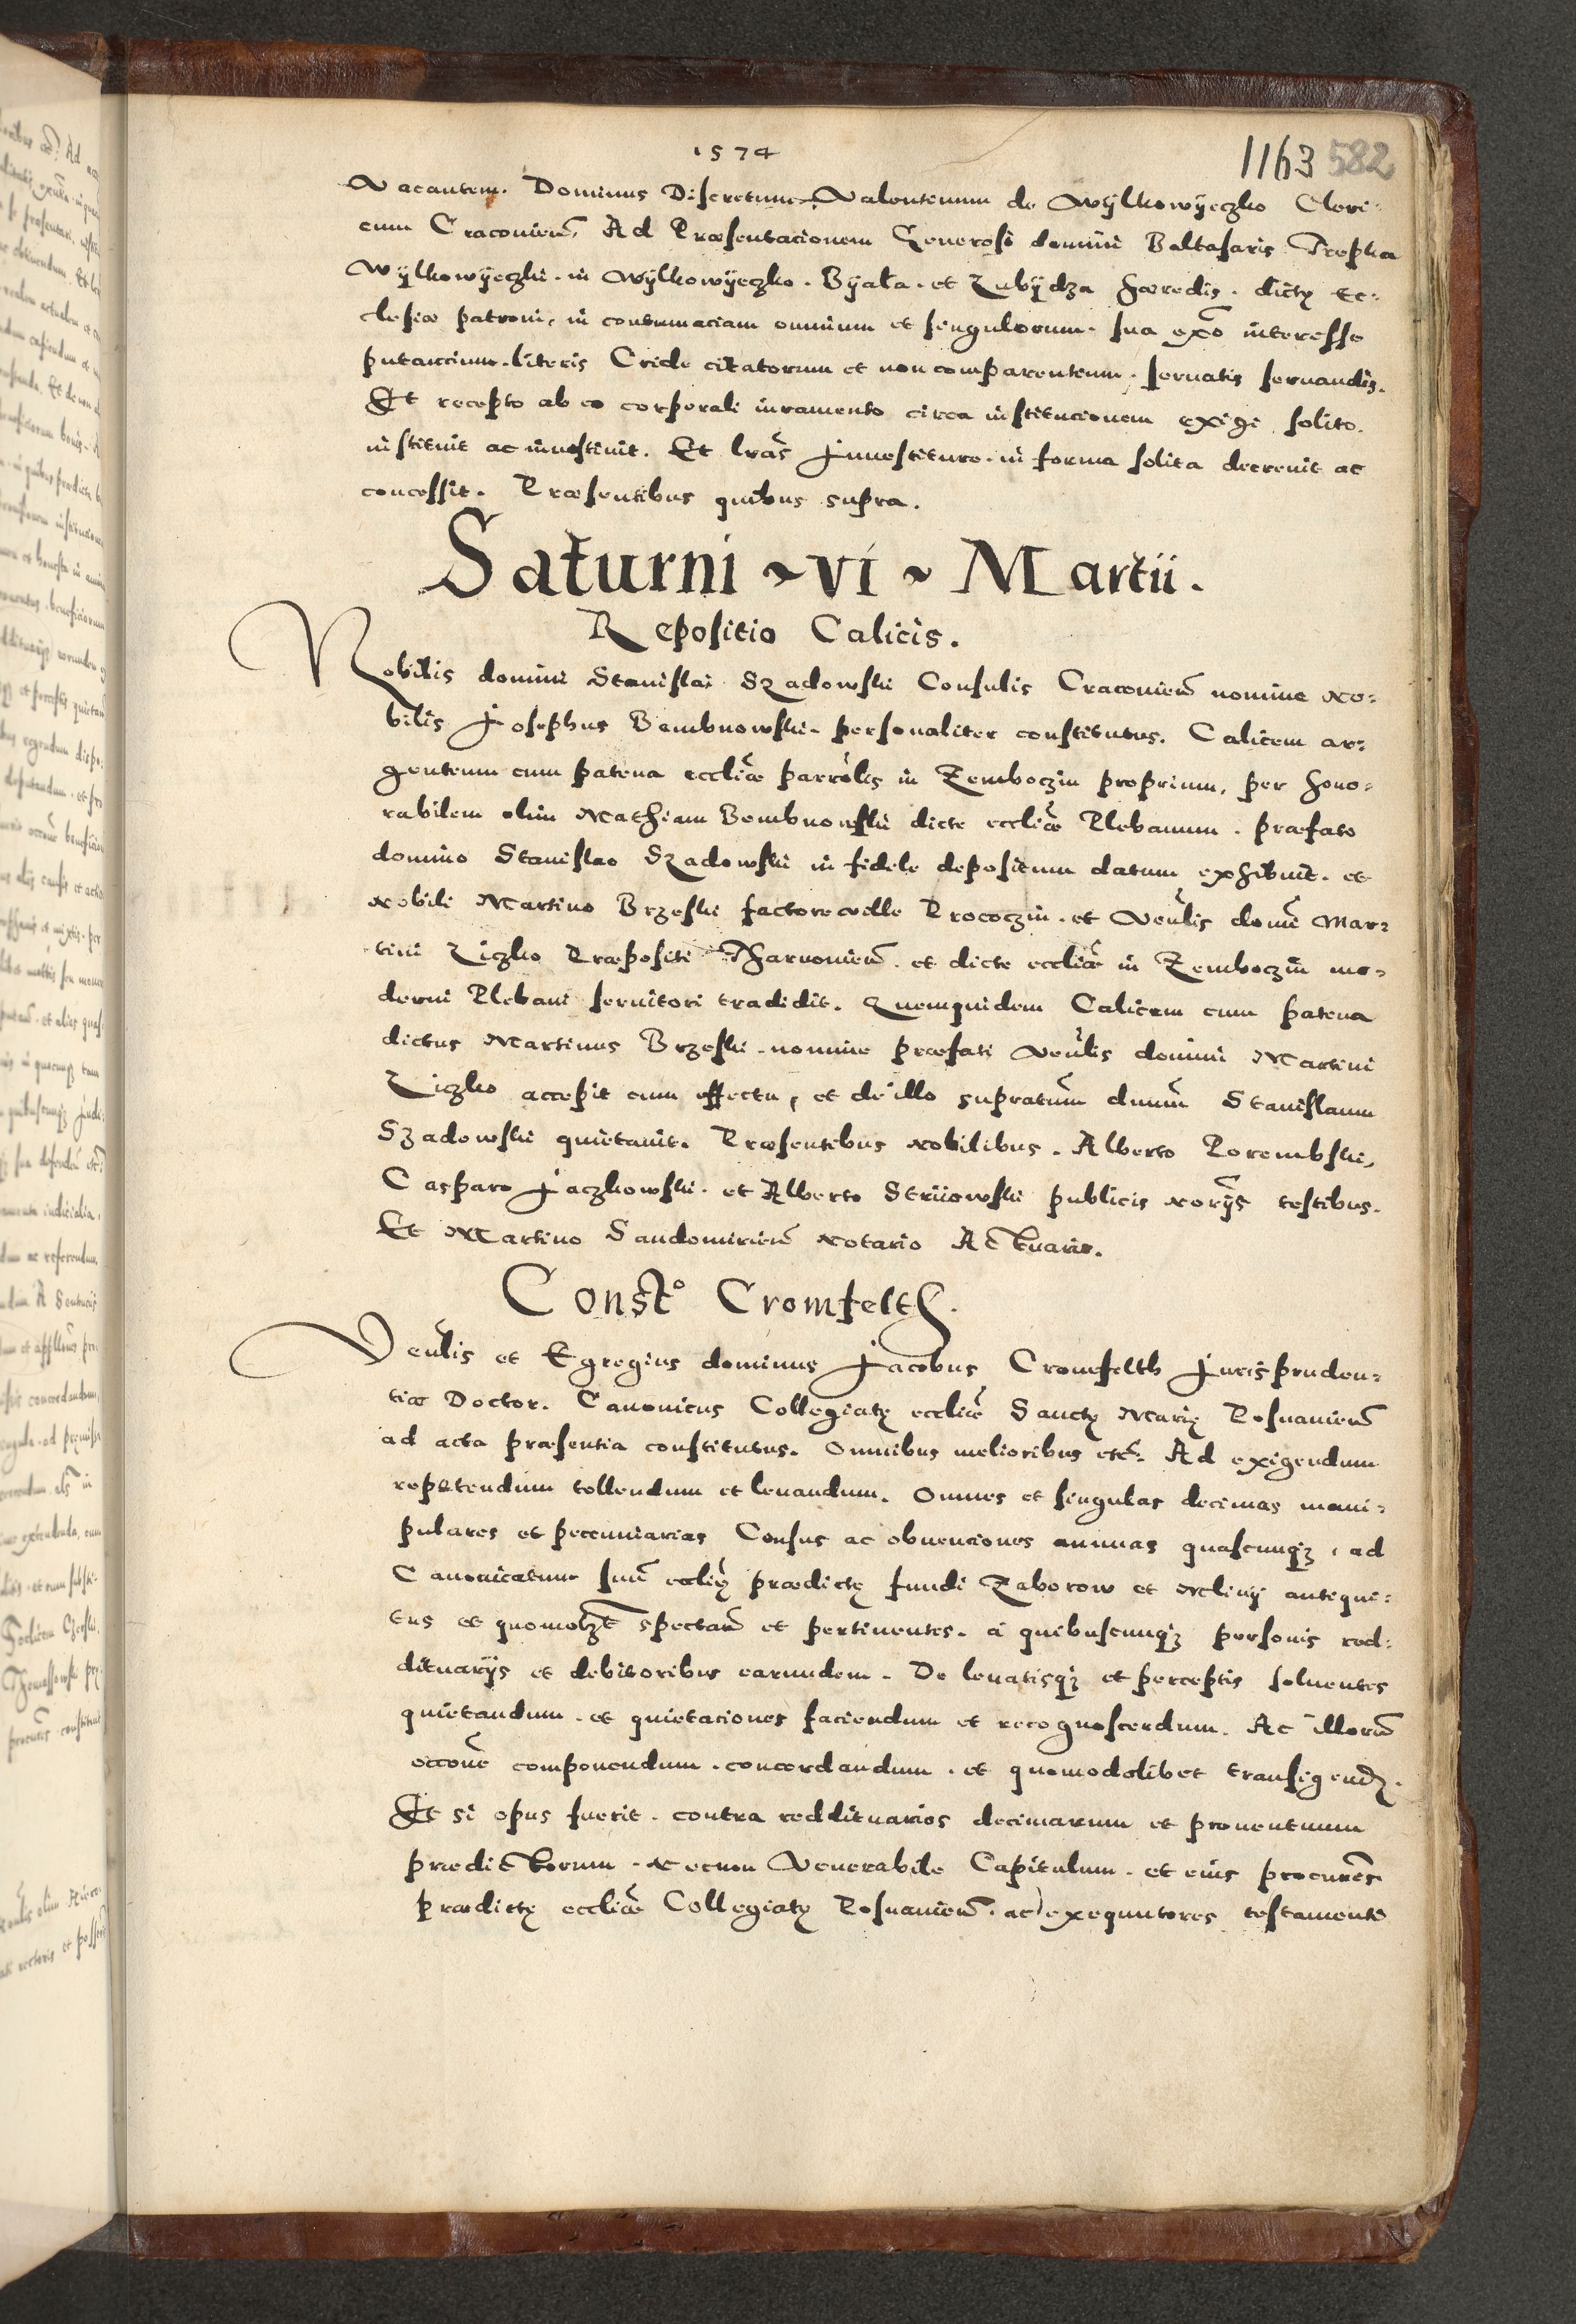 1574
1163 582
Vacantem. Dominus Discretum Valentinum de Wÿlkowÿeczko Cleri:
cum Cracovien̄. Ad Præsentacionem Generosi domini Baltasaris Trepka
Wÿlkowÿeczki. in Wÿlkowÿeczko. Bÿała. et Lubÿdza hæredis. dictę Ec:
clesiæ patroni, in contumaciam omnium et singulorum. sua exõ interesse
putantium. literis Cride citatorum et non comparentium. servatis servandis.
Et recepto ab eo corporali iuramento circa institucionem exigi solito.
instituit ac investivit. Et lrãs Investiture. in forma solita decrevit ac
concessit. Præsentibus quibus supra.
Saturni ~ vi ~ Martii.
Repositio Calicis.
Nobilis domini Stanislai Szadowski Consulis Cracovien̄ nomine No:
bilis Josephus Bembnowski. personaliter constitutus. Calicem ar:
genteum cum patena eccliæ̃ parrõlis in Zemboczin proprium, per hono:
rabilem olim Mathiam Bembnowski dicte eccliæ̃ Plebanum. præfato
domino Stanislao Szadowski in fidele depositum datum exhibuit. et
Nobili Martino Brzeski factore ville Prococzin. et Ven̄lis domĩ Mar:
tini Ziczko Præpositi Tharnovien̄. et dicte eccliæ̃ in Zemboczin mo:
derni Plebani servitori tradidit. Quemquidem Calicem cum patena
dictus Martinus Brzeski. nomine præfati Ven̄lis domini Martini
Ziczko accepit cum effectu, et de illo supratum̃ dnum̃ Stanislaum
Szadowski quietavit. Præsentibus Nobilibus. Alberto Porembski,
Casparo Jaczkowski. et Alberto Strüowski publicis Norÿs̃ testibus.
Et Martino Sandomirien̄ Notario Actuario.
Constº Cromfelth.
Ven̄lis et Egregius dominus Jacobus Cromfelth Jurispruden:
tiæ Doctor. Canonicus Collegiatę eccliæ̃ Sanctę Marię Posnanien̄
ad acta præsentia constitutus. Omnibus melioribus etc̃. Ad exigendum
repetendum tollendum et levandum. Omnes et singulas decimas mani:
pulares et peccuniarias Census ac obvenciones annuas quascunqȝ, ad
Canonicatum suũ ecclię̃ prædictę fundi Zaborow et Mliny antiqui:
tus et quomolȝt spectañ et pertinentes. a quibuscunqȝ personis red:
dituarÿs et debitoribus earundem. De levatisqȝ et perceptis solventes
quietandum. et quietaciones faciendum et recognoscendum. Ac illorũ
occoñe componendum. concordandum. et quomodolibet transigendȝ.
Et si opus fuerit. contra reddituarios decimarum et proventuum
prædictorum. Necnon Venerabile Capitulum. et eius procurẽs
prædictę eccliæ̃ Collegiatę Posnanien̄. ac exequutores testamenti